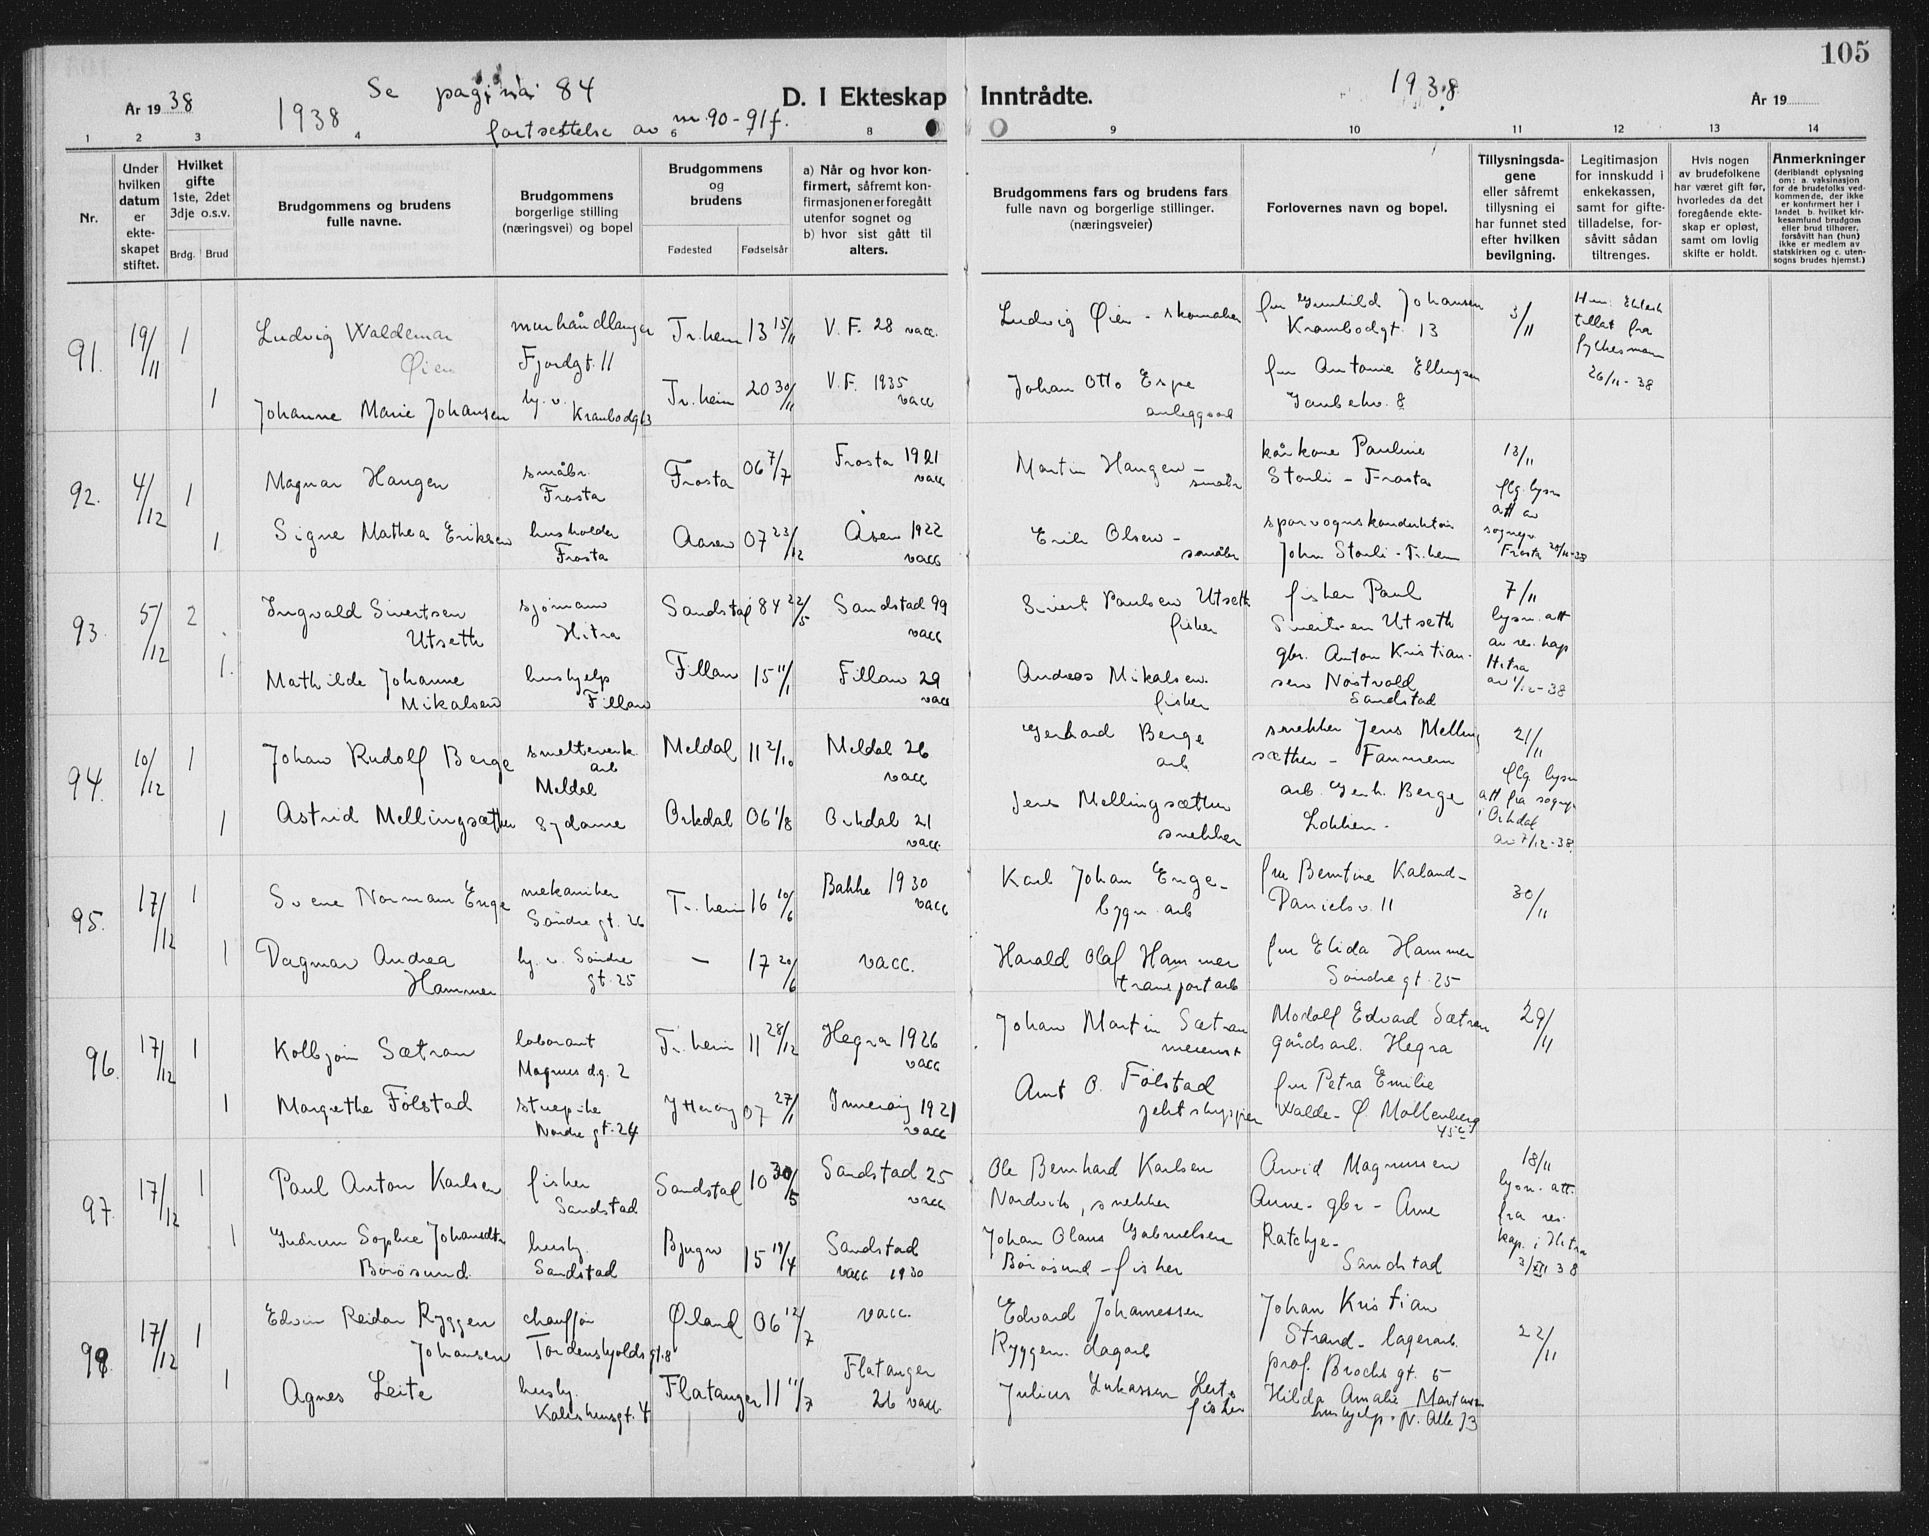 105
År 1938
Se pagina 84
1938
fortsettelse av nr. 90-91 f.
D. I Ekteskap Inntrådte.
1938
År 19
1 2 3 4 6 8 9 10 11 12 13 14
Nr.
Under hvilken datum er ekteskapet stiftet.
Hvilket gifte 1ste, 2det 3dje o.s.v.
Brdg. Brud
Brudgommens og brudens fulle navne.
Brudgommens borgerlige stilling (næringsvei) og bopel
Brudgommens og brudens
Fødested Fødselsår
a) Når og hvor konfirmert, såfremt konfirmasjonen er foregått utenfor sognet og b) hvor sist gått til alters.
Brudgommens fars og brudens fars fulle navn og borgerlige stillinger. (næringsveier)
Forlovernes navn og bopel.
Tillysningsdagene eller såfremt tillysning ei har funnet sted efter hvilken bevilgning.
Legitimasjon for innskudd i enkekassen, samt for giftetilladelse, forsåvitt sådan tiltrenges.
Hvis nogen av brudefolkene har været gift før, hvorledes da det foregående ekteskap er opløst, samt om lovlig skifte er holdt.
Anmerkninger (deriblandt oplysning om: a. vaksinasjon for de brudefolks vedkommende, der ikke er konfirmert her i landet. b. hvilket kirkesamfund brudgom eller brud tilhører, forsåvitt han (hun) ikke er medlem av statskirken og c. utensogns brudes hjemst.)
91. 19/11 1 Ludvig Waldemar Øien murhåndlanger Fjordgt. 11 Tr.heim 13 15/11 V. F. 28 vacc. Ludvig Øien - skomaker fru Gunhild Johansen Krambodgt. 13 3/11 tillat fra fylkesmann 26/11-38
1 Johanne Marie Johansen hj. v. Krambodgt 13 Tr.heim 20 30/11 V. F. 1935 vacc Johan Otto Espe anleggsarb fru Antonie Ellingsen 8
92. 4/12 1 Magnar Haugen småbr. Frosta Frosta 06 7/7 Frosta 1921 vacc Martin Haugen - småbr kårkone Pauline Storli - Frosta 13/11 flg. lysn att av sognepr Frosta 20/11-38
1 Signe Mathea Eriksen husholder Frosta Aasen 07 23/12 Åsen 1922 vacc Erik Olsen - småbr sporvognskonduktør John Storli - Tr.heim
93. 5/12 2 Ingvald Sivertsen Utseth sjømann Hitra Sandstad 84 22/5 Sandstad 99 vacc Sivert Paulsen Utseth fisker fisker Paul Sivertsen Utseth 7/11 lysn. att av res. kap Hitra av 1/12-38
1. Mathilde Johanne Mikalsen hushjelp Fillan Fillan 15 11/1 Fillan 29 vacc Andreas Mikalsen. fisker gbr. Anton Kristiansen Nøstvold Sandstad
94. 10/12 1 Johan Rudolf Berge smelteverk. arb Meldal Meldal 11 2/10 Meldal 26 vacc Gerhard Berge arb snekker Jens Mellingsæther - Fannrem 21/11 flg lysn att fra sognepr i Orkdal av 7/12-38
1 Astrid Mellingsæther sydame Orkdal 06 1/8 Orkdal 21 vacc. Jens Mellingsæther snekker arb. Gerh. Berge Løkken.
95. 17/12 1 Svene Norman Enge mekaniker Søndre gt. 26 Tr.heim 16 10/6 Bakke 1930 vacc Karl Johan Enge - bygn. arb fru Berntine Kaland - Danielsv. 11 30/11
1 Dagmar Andrea Hammer hj. v. Søndre gt. 25 - 17 20/6 vacc. Harald Olaf Hammer transportarb fru Elida Hammer Søndre gt. 25
96. 17/12 1 Kolbjørn Sætran laborant Magnus d.g. 2 Tr.heim 11 28/12 Hegra 1926 vacc Johan Martin Sætran Modolf Edvard Sætran gårdsarb. Hegra 29/11
1 Margrethe Følstad stuepike Nordre gt. 24 Ytterøy 07 27/11 Inderøy 1921 vacc Arnt O. Følstad jektskipper fru Petra Emilie Walde - Ø Møllenberg 45c
97. 17/12 1 Paul Anton Karlsen fisker Sandstad Sandstad 10 30/5 Sandstad 25 vacc Ole Bernhard Karlsen Nordvik, snekker Arvid Magnussen Aune - gbr - Aune 18/11 lysn. att. fra res. kap. i Hitra 3/XII 38
1 Gudrun Sophie Johansdtr Børøsund hushj. Sandstad Bjugn 15 19/4 Sandstad vacc 1930 Johan Olaus Gabrielsen Børøsund - fisker Ratchje - Sandstad
98. 17/12 1 Edvin Reidar Ryggen Johansen chauffør Tordenskjolds gt. 8 Ørland 06 12/7 vacc. Edvard Johannessen Ryggen. dagarb Johan Kristian Strand - lagerarb. prof. Brochs gt. 5 22/11
1 Agnes Leite hushj. Flatanger 11 11/7 Flatanger 26 vacc. Julius Lukassen Leite fisker Hilda Amalie Martinsen hushjelp. N. Alle 13